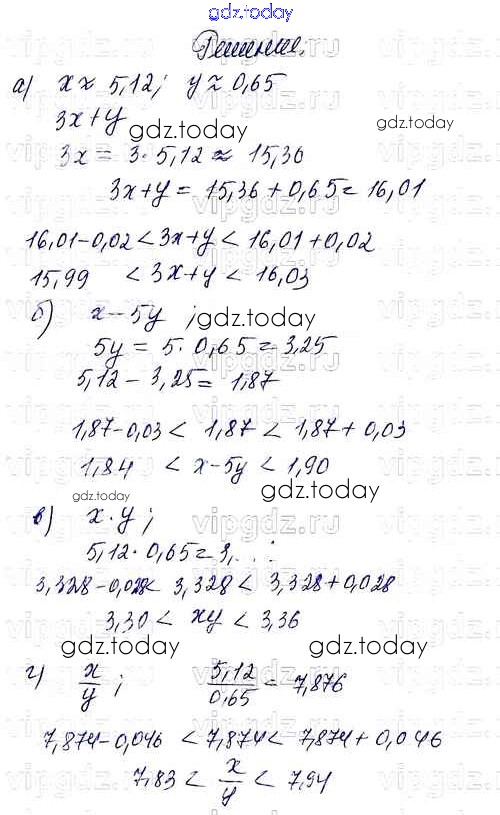 gdz.today
Решение.
а) x ≈ 5,12; y ≈ 0,65
3x+y
gdz.today gdz.today
3x = 3·5,12 ≈ 15,36
3x+y = 15,36+0,65 = 16,01
16,01-0,02 < 3x+y < 16,01+0,02
15,99 < 3x+y < 16,03
б) x-5y ; gdz.today
5y = 5·0,65 = 3,25
5,12-3,25 = 1,87
1,87-0,03 < 1,87 < 1,87+0,03
1,84 < x-5y < 1,90
gdz.today gdz.today
в) x·y ;
5,12·0,65 = 3,
3,328-0,028 < 3,328 < 3,328+0,028
3,30 < xy < 3,36
gdz.today gdz.today
г) x/y ; 5,12/0,65 = 7,876
7,874-0,046 < 7,874 < 7,874+0,046
7,83 < x/y < 7,94